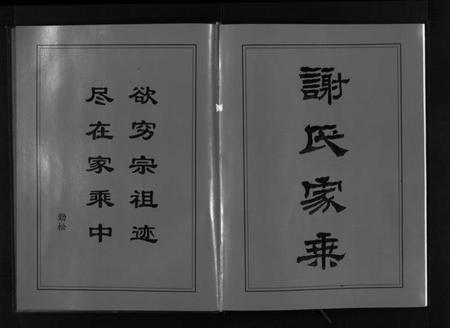 謝氏家乘
欲穷宗祖迹
尽在家乘中
勁松